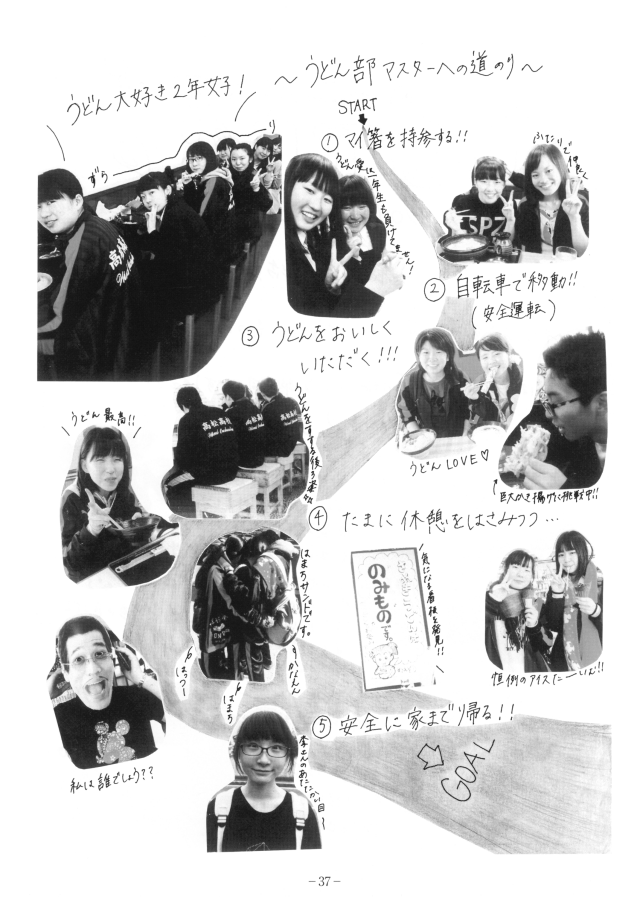 うどん大好き2年女子!
～うどん部マスターへの道のり～
START
ずら
り
① マイ箸を持参する!!
うどん愛は一年生も負けてません!
ふたりで仲良く
SPZ
② 自転車で移動!!
(安全運転)
③ うどんをおいしく
いただく!!!
うどん最高!!
高松高校
うどんをすする後ろ姿
うどんLOVE♡
巨大かき揚げに挑戦中!!
④ たまに休憩をはさみつつ…
はまちサンドです。
はまち
気になる看板を発見!!
のみもの
恒例のアイスたーいむ!!
私は誰でしょう??
⑤ 安全に家まで帰る!!
GOAL
李さんのあたたかい目
－37－